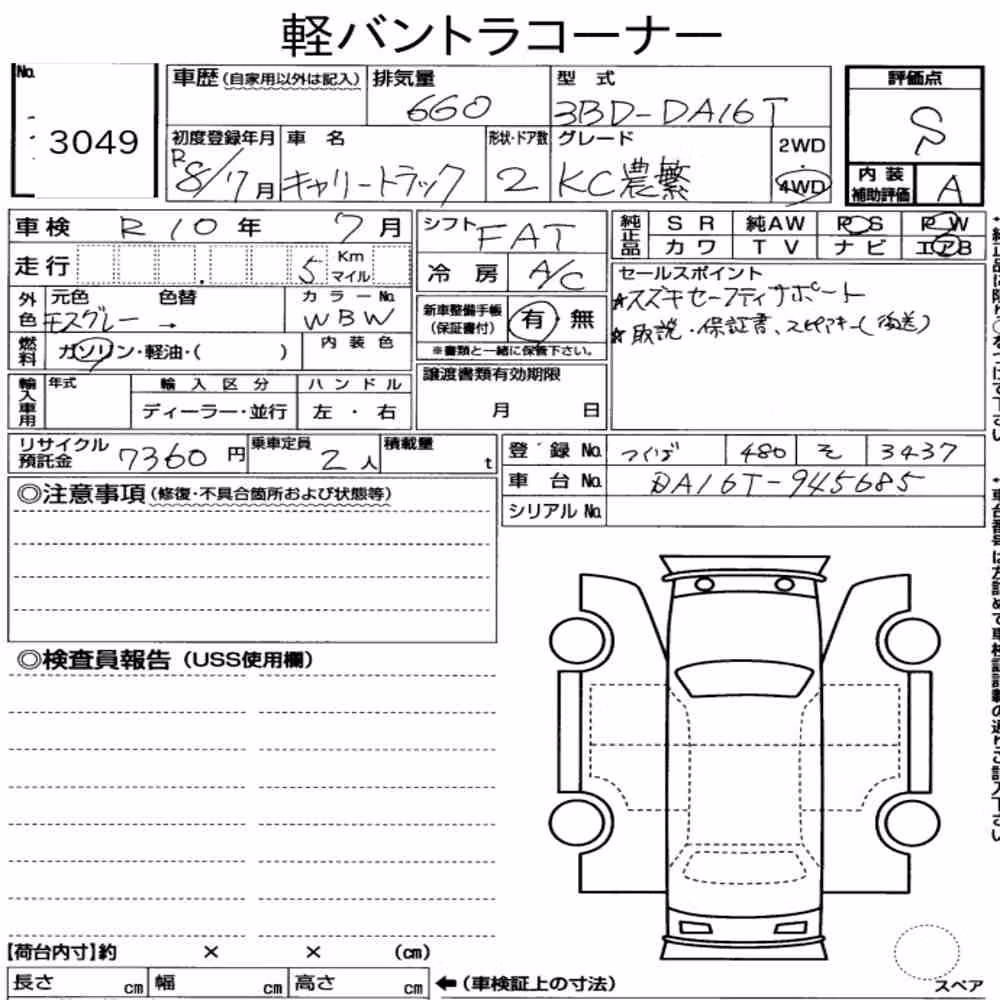 軽バントラコーナー
No.
3049
車歴 (自家用以外は記入)
排気量
660
型式
3BD-DA16T
評価点
S
初度登録年月
R8/7月
車名
キャリートラック
形状・ドア数
2
グレード
KC農繁
2WD
・
4WD
内装
補助評価
A
車検 R10年 7月
シフト
FAT
純正品
SR 純AW PS PW
カワ TV ナビ エアB
走行 5 Km マイル
冷房 A/C
セールスポイント
☆スズキセーフティサポート
☆取説・保証書、スピアキー(後送)
外色
元色 色替
モスグレー →
カラーNo.
WBW
新車整備手帳
(保証書付)
有 無
※書類と一緒に保管下さい。
燃料
ガソリン・軽油・( )
内装色
譲渡書類有効期限
月 日
輸入車用
年式
輸入区分
ディーラー・並行
ハンドル
左・右
リサイクル
預託金 7360円
乗車定員
2人
積載量
t
登録No. つくば 480 そ 3437
車台No. DA16T-945685
シリアルNo.
◎注意事項 (修復・不具合箇所および状態等)
◎検査員報告 (USS使用欄)
【荷台内寸】約 × × (cm)
長さ cm 幅 cm 高さ cm
←(車検証上の寸法)
スペア